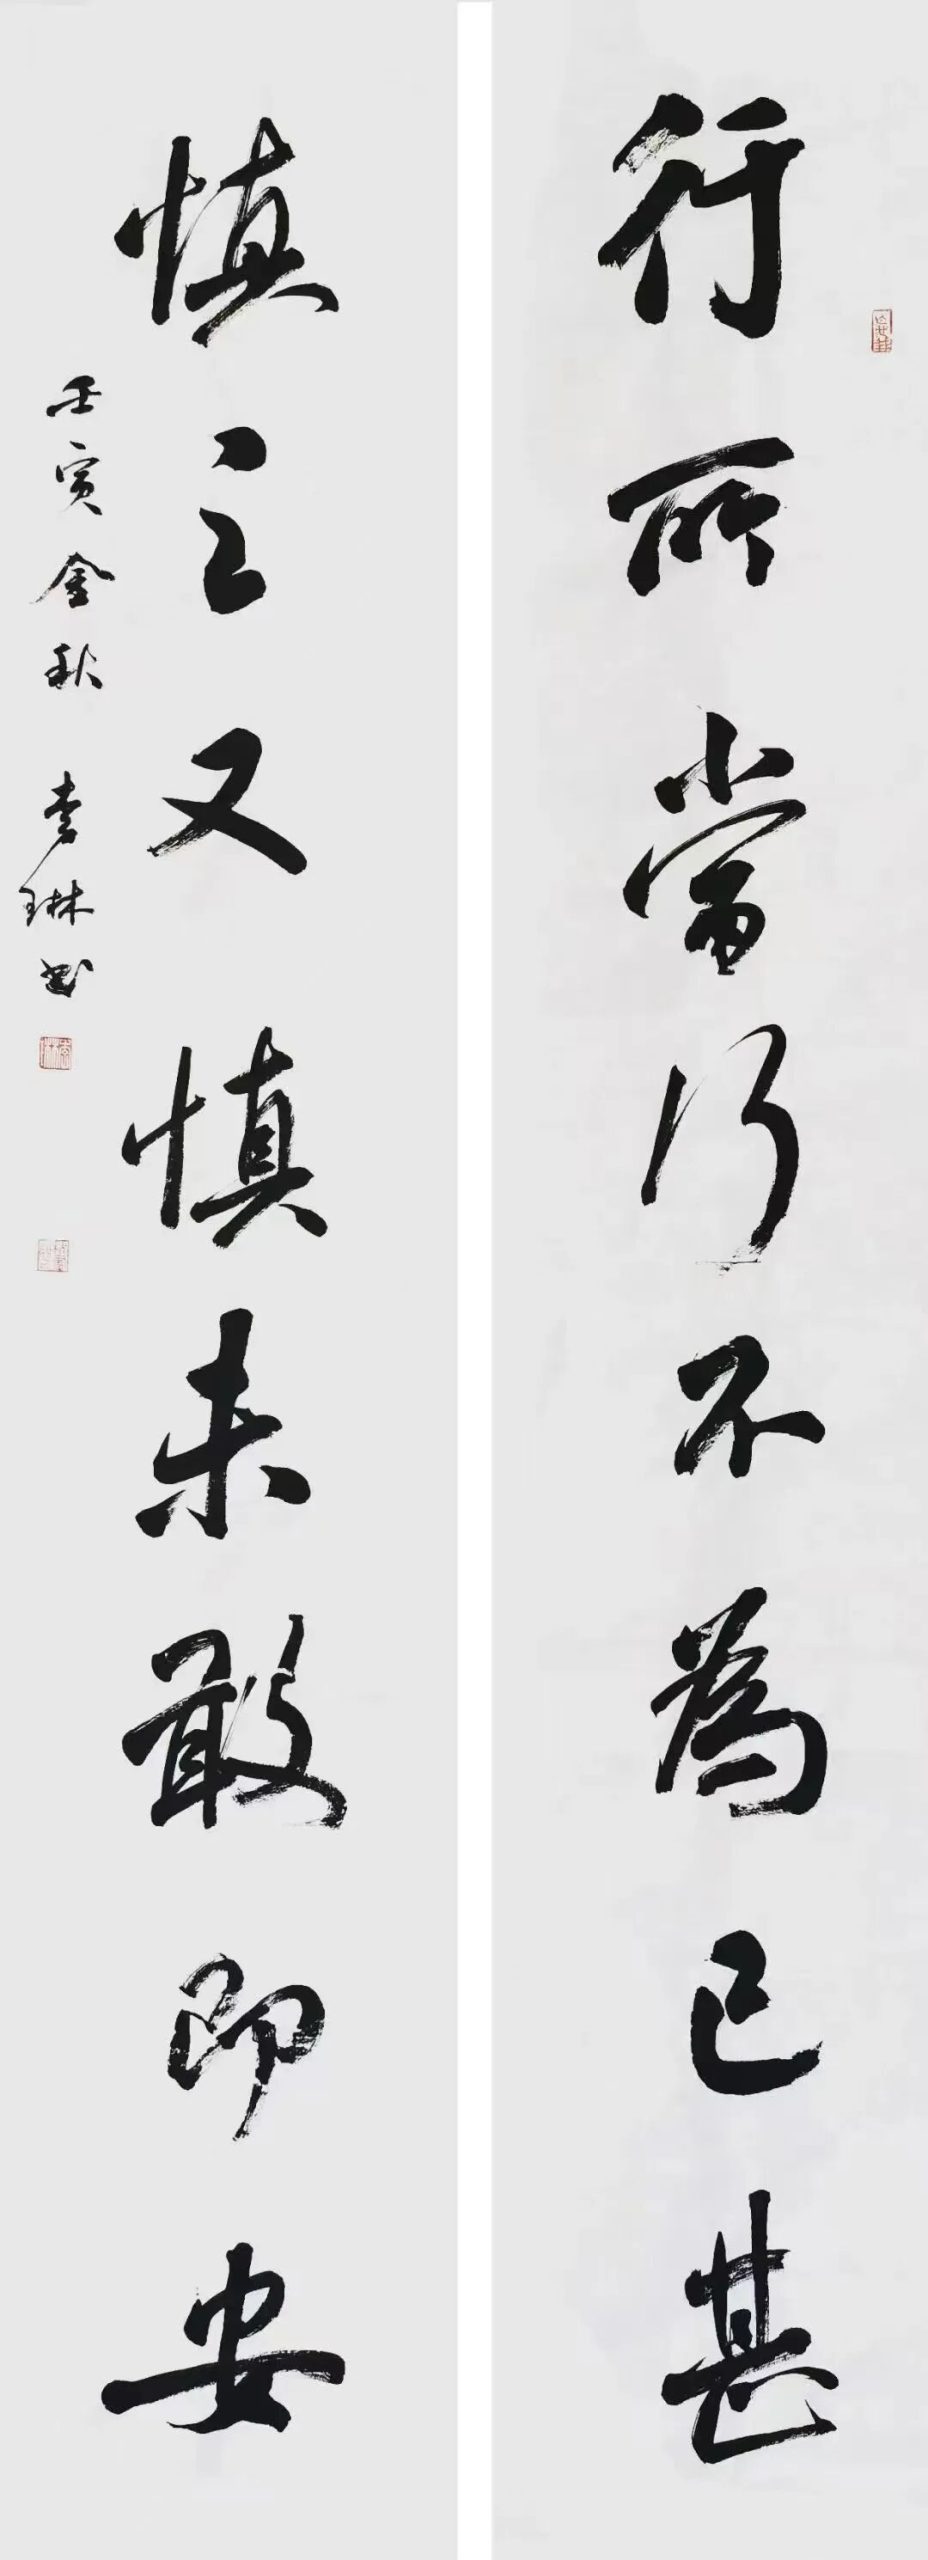 行所當行不為已甚
慎之又慎未敢即安
壬寅金秋 李琳書